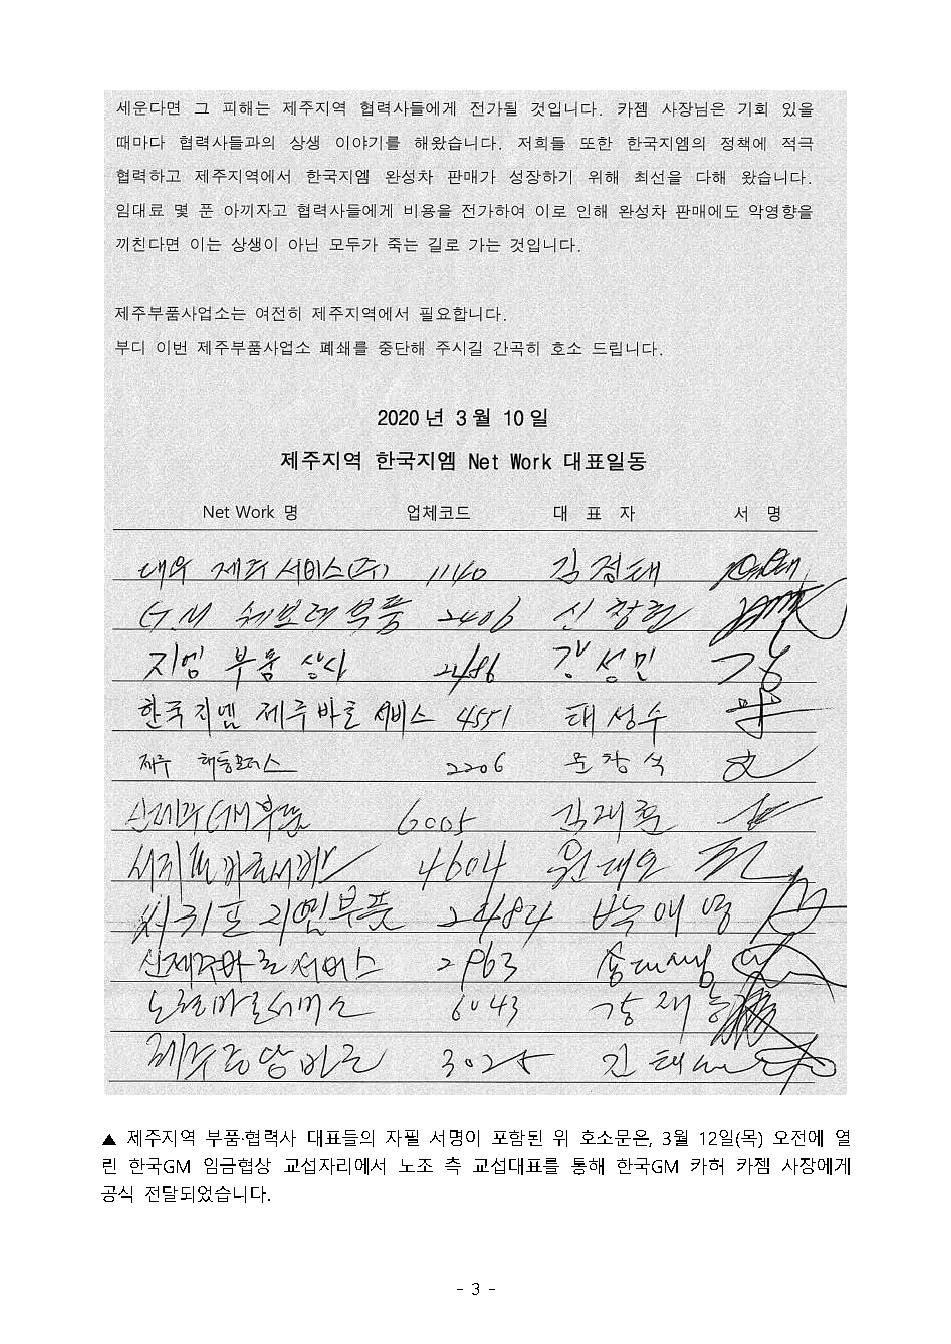 세운다면 그 피해는 제주지역 협력사들에게 전가될 것입니다. 카젬 사장님은 기회 있을
때마다 협력사들과의 상생 이야기를 해왔습니다. 저희들 또한 한국지엠의 정책에 적극
협력하고 제주지역에서 한국지엠 완성차 판매가 성장하기 위해 최선을 다해 왔습니다.
임대료 몇 푼 아끼자고 협력사들에게 비용을 전가하여 이로 인해 완성차 판매에도 악영향을
끼친다면 이는 상생이 아닌 모두가 죽는 길로 가는 것입니다.
제주부품사업소는 여전히 제주지역에서 필요합니다.
부디 이번 제주부품사업소 폐쇄를 중단해 주시길 간곡히 호소 드립니다.
2020년 3월 10일
제주지역 한국지엠 Net Work 대표일동
Net Work 명 업체코드 대 표 자 서 명
대우 제주서비스(주) 1140 김정태
G.M 쉐보레부품 2406 신창현
지엠 부품 상사 2486 강성민
한국지엠 제주바로서비스 4551 태성수
제주 해동모터스 2206 문창석
신제주GM부품 6005 김재훈
바로서비스 4604 원대오
서귀포지엠부품 2484 박애영
신제주바로서비스 2963
노형바로서비스 6043 강재
제주중앙바로 3025 김태
▲ 제주지역 부품·협력사 대표들의 자필 서명이 포함된 위 호소문은, 3월 12일(목) 오전에 열
린 한국GM 임금협상 교섭자리에서 노조 측 교섭대표를 통해 한국GM 카허 카젬 사장에게
공식 전달되었습니다.
- 3 -